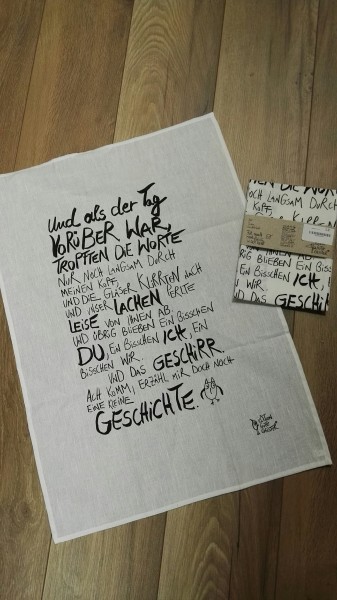 Und als der Tag
VORÜBER WAR,
TROPFTEN DIE WORTE
NUR NOCH LANGSAM DURCH
MEINEN KOPF,
UND DIE GLÄSER KLIRRTEN NACH
UND UNSER LACHEN PERLTE
LEISE VON IHNEN AB.
UND ÜBRIG BLIEBEN EIN BISSCHEN
DU, EIN BISSCHEN ICH, EIN
BISSCHEN WIR.
UND DAS GESCHIRR.
ACH KOMM, ERZÄHL MIR DOCH NOCH
EINE KLEINE
GESCHICHTE.
EN DIE WOR
OCH LANGSAM DURCH
KOPF,
BRIG BLIEBEN EIN BISS
EIN BISSCHEN ICH,
WIR.
UND DAS GESCHI